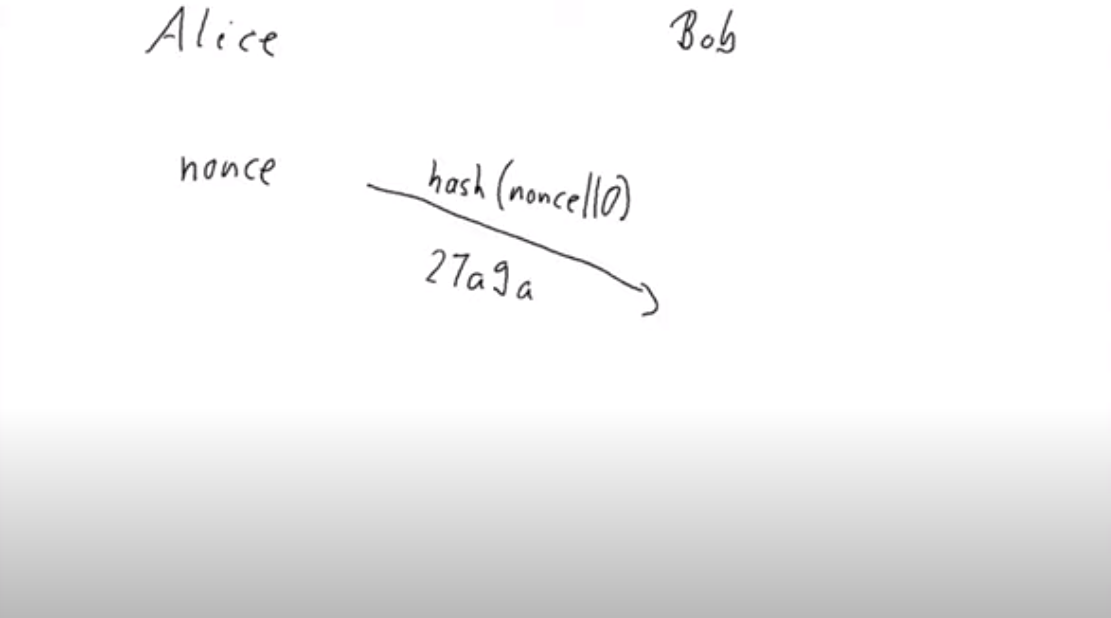 Alice Bob
nonce hash(nonce||0)
27a9a